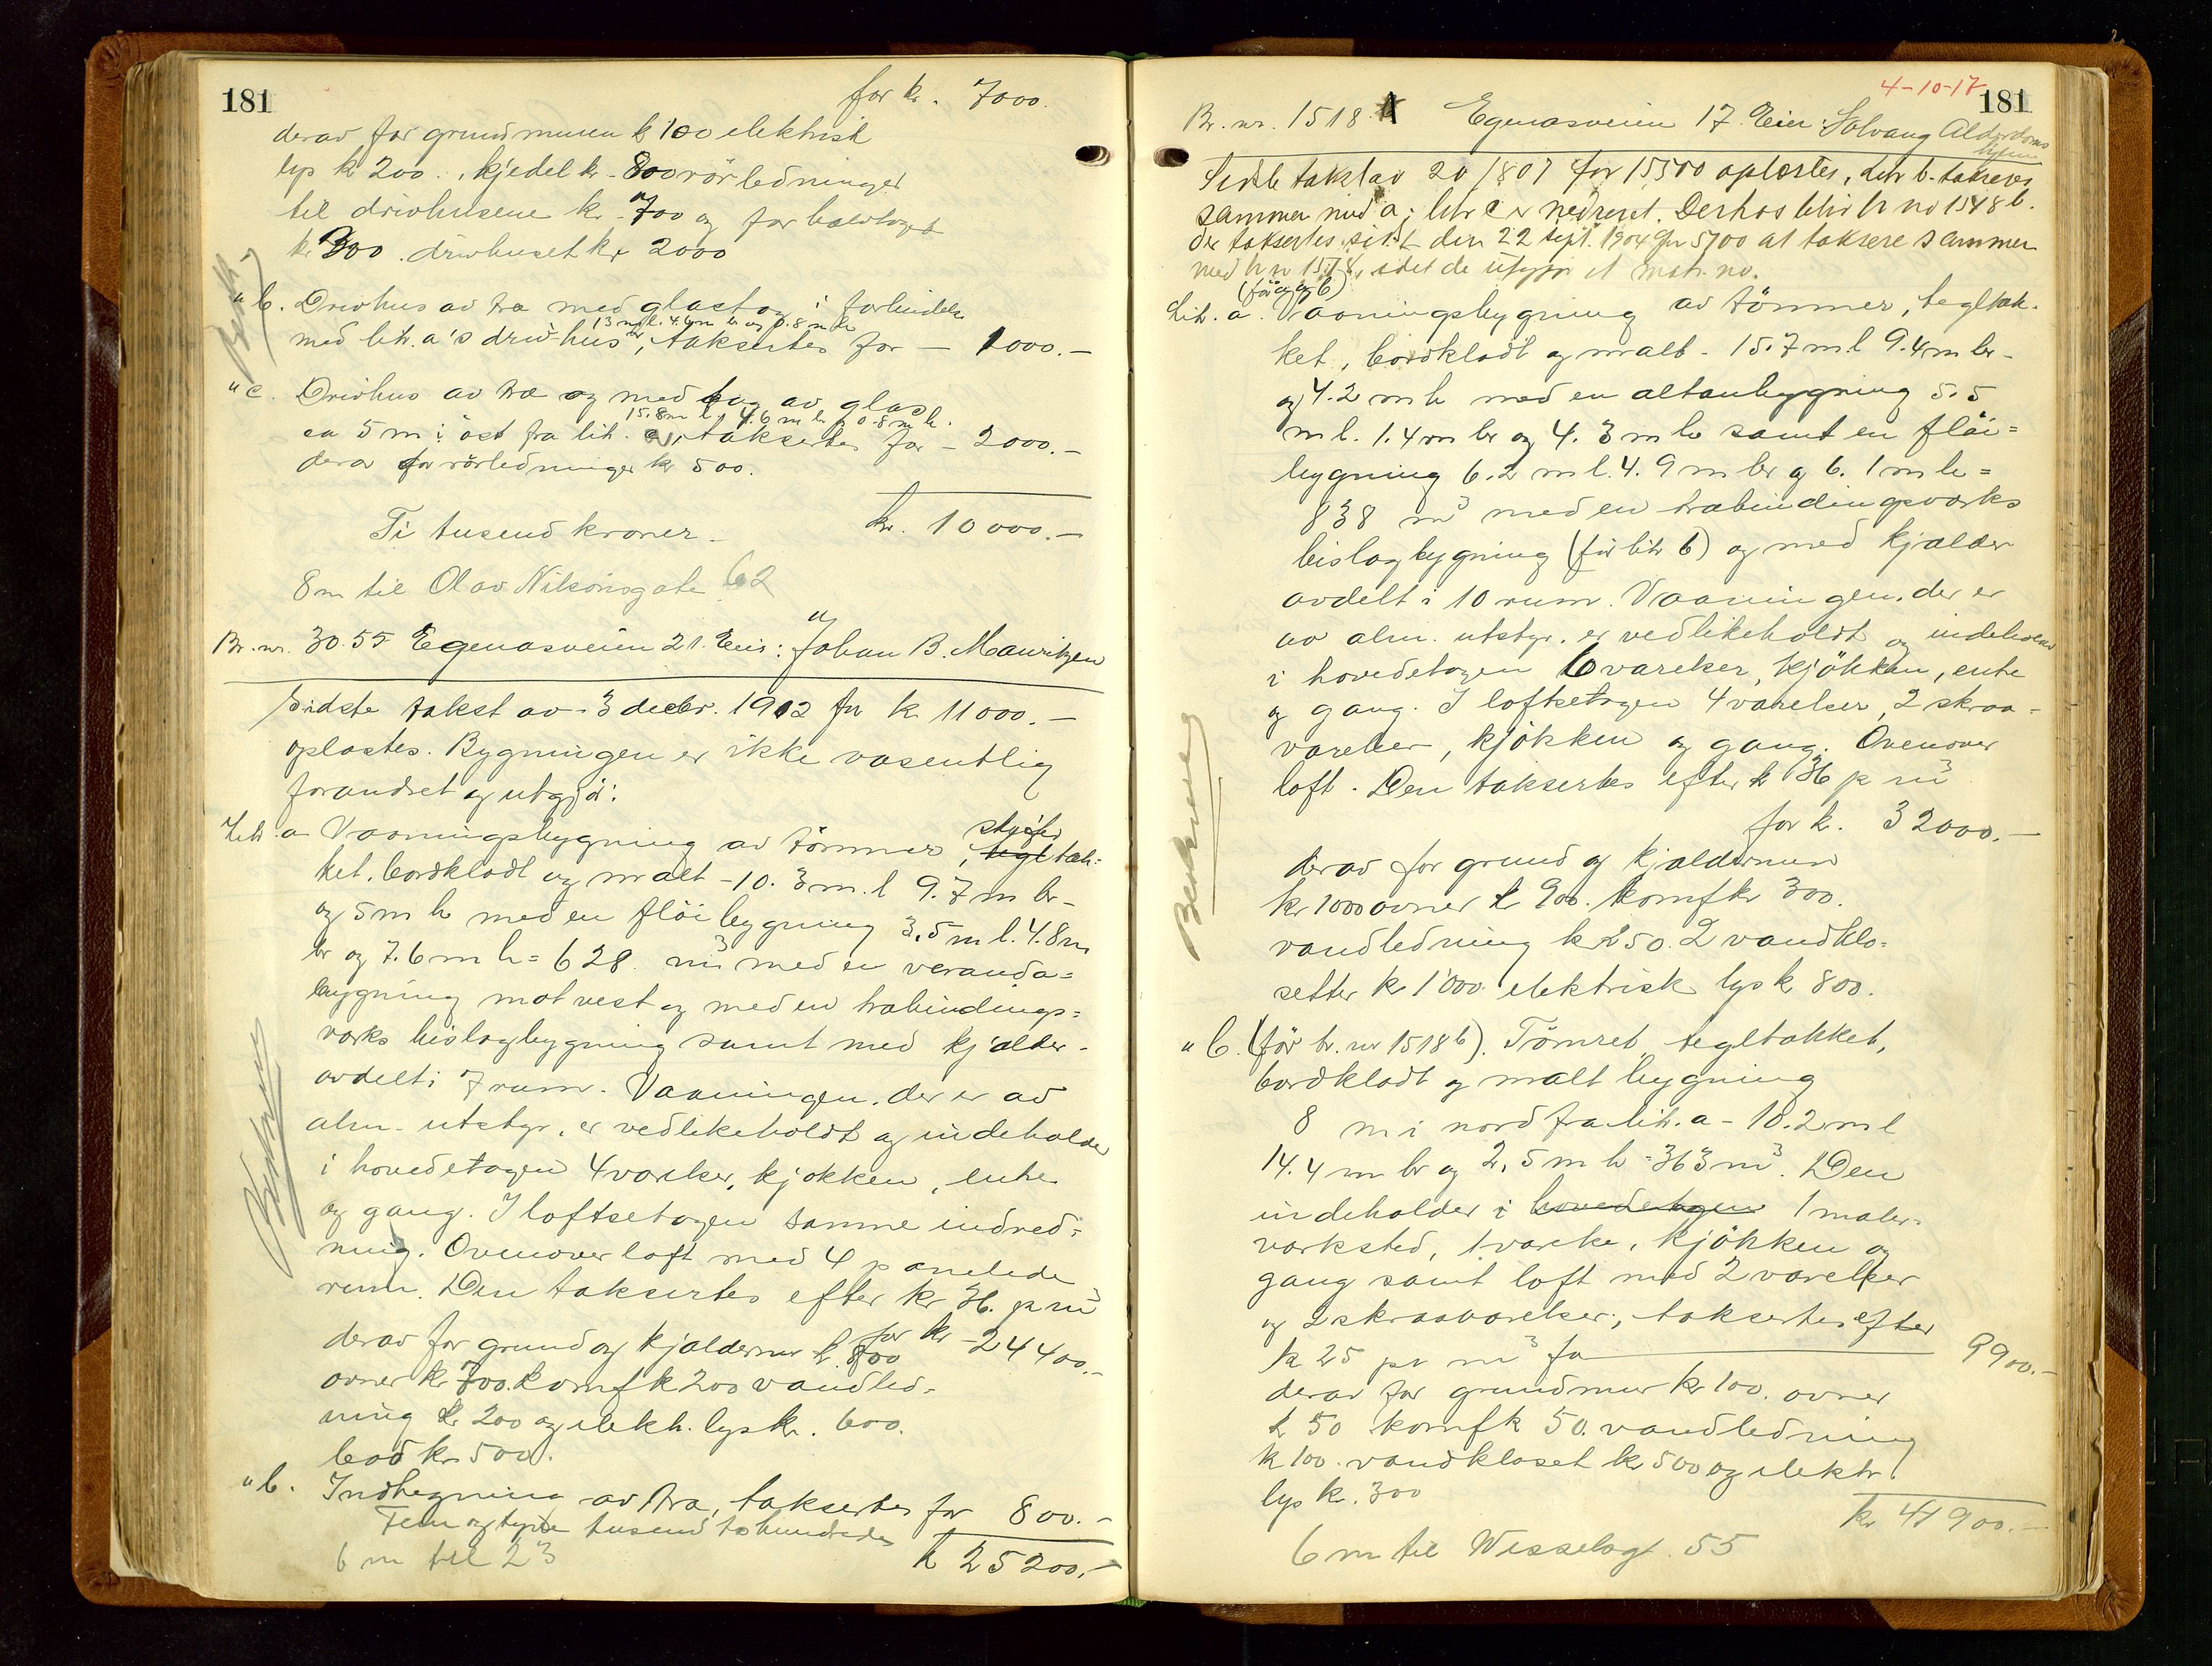 181
for kr. 7000.
derav for grundmuren k 100 elektrisk
lys k 200. kjedel kr. 800 rörledninger
til drivhusene kr. 700 og for halvtaget
kr 300. drivhuset kr 2000
" b. Drivhus av træ med glastag i forbindelse
13 m l. 4.6 m br og 0.8 m h
med litr. a's drivhus, taksertes for — 1000.—
" c. Drivhus av træ og med tag av glas
15.8 m l, 4.6 m br og 0.8 m h.
ca 5 m i öst fra litr. a, taksertes for — 2000.—
derav for rörledninger kr 500.
Ti tusend kroner.
kr. 10000.—
8 m til Olav Nilsönsgate 62
Br. nr. 3055 Egenæsveien 21. Eier: Johan B. Mauritzen
Sidste takst av 3 decbr. 1912 for k 11000.—
oplæstes. Bygningen er ikke væsentlig
forandret og utgjör:
Litr. a Vaaningsbygning av tömmer, tegl skifer tæk=
ket, bordklædt og malt - 10.3 m. l 9.7 m br-
og 5 m h med en flöibygning 3.5 m l. 4.8 m
br og 7.6 m h = 628 m3 med en veranda=
bygning mot vest og med en træbindings=
verks bislagbygning samt med kjælder-
avdelt i 7 rum. Vaaningen, der er av
alm. utstyr, er vedlikeholdt og indeholder
i hovedetagen 4 værelser, kjökken, entre
og gang. I loftsetagen samme indred=
ning. Ovenover loft med 4 panelede
rum. Den taksertes efter kr 36. pr m3
for kr - 24400.-
derav for grund og kjældermur k. 800
ovner kr 700. komf k 200 vandled=
ning kr 200 og elektr. lys kr. 600.
bad kr. 500.
" b. Indhegning av træ, taksertes for 800.-
Fem og tyve tusend to hundrede
k 25200.-
6 m til 23
4-10-17
181
Br. nr. 1518 A Egenæsveien 17. Eier: Solvang Alderdoms
hjem
Sidste takst av 20/8 07 for 15500 oplæstes, litr b. takseres
sammen med a; litr c er nedrevet. Derhos blir br no 1548 b.
der taksertes sidst den 22 sept. 1904 for 5700 at taksere sammen
med br no 1518, idet de utgjör et matr. no.
(för a og b)
Litr. a. Vaaningsbygning av tömmer, tegltæk-
ket, bordklædt og malt - 15.7 m l 9.4 m br-
og 4.2 m h med en altanbygning 5.5
m l. 1.4 m br og 4.3 m h samt en flöi=
bygning 6.2 m l. 4.9 m br og 6.1 m h =
838 m3 med en træbindingsverks
bislagbygning (för litr b) og med kjælder
avdelt i 10 rum. Vaaningen, der er
av alm. utstyr, er vedlikeholdt og indeholder
i hovedetagen 6 værelser, kjökken, entre
og gang. I loftsetagen 4 værelser, 2 skraa-
værelser, kjökken og gang. Ovenover
loft. Den taksertes efter k 36 pr m3
for k. 32000.—
derav for grund og kjældermur
kr 1000 ovner k 900. komf kr 300.
vandledning k 250. 2 vandklo=
setter kr 1000. elektrisk lys k 800.
" b. (för br. nr 1518 b). Tömret, tegltækket,
bordklædt og malt bygning
8 m i nord fra litr. a - 10.2 m l
14.4 m br og 2.5 m h = 363 m3. Den
indeholder i hovedetagen 1 maler=
verksted, 1 værelse, kjökken og
gang samt loft med 2 værelser
og 2 skraaværelser; taksertes efter
k 25 pr m3 for 9900.—
derav for grundmur kr 100. ovner
k 50 komf k 50. vandledning
k 100. vandkloset kr 500 og elektr.
lys kr. 300
kr 41900.—
6 m til Wesselsgt. 55